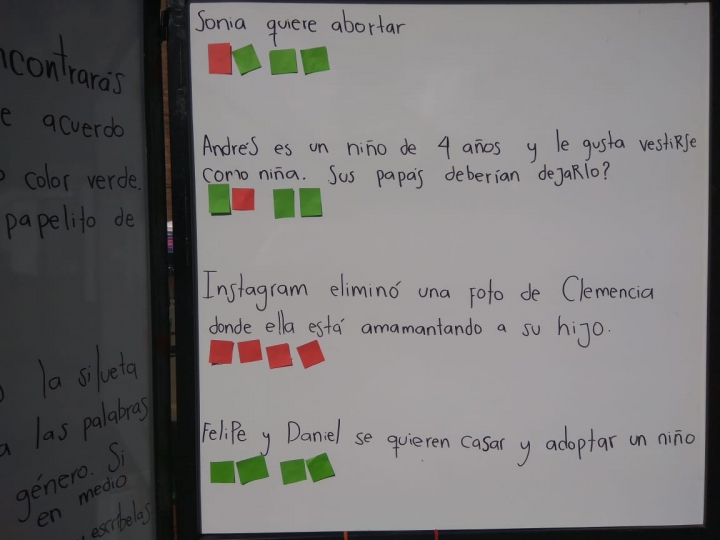 ncontrarás
e acuerdo
color verde.
papelito de
la silueta
a las palabras
género. Si
en medio
escríbelas
Sonia quiere abortar
Andrés es un niño de 4 años y le gusta vestirse
como niña. Sus papás deberían dejarlo?
Instagram eliminó una foto de Clemencia
donde ella está amamantando a su hijo.
Felipe y Daniel se quieren casar y adoptar un niño